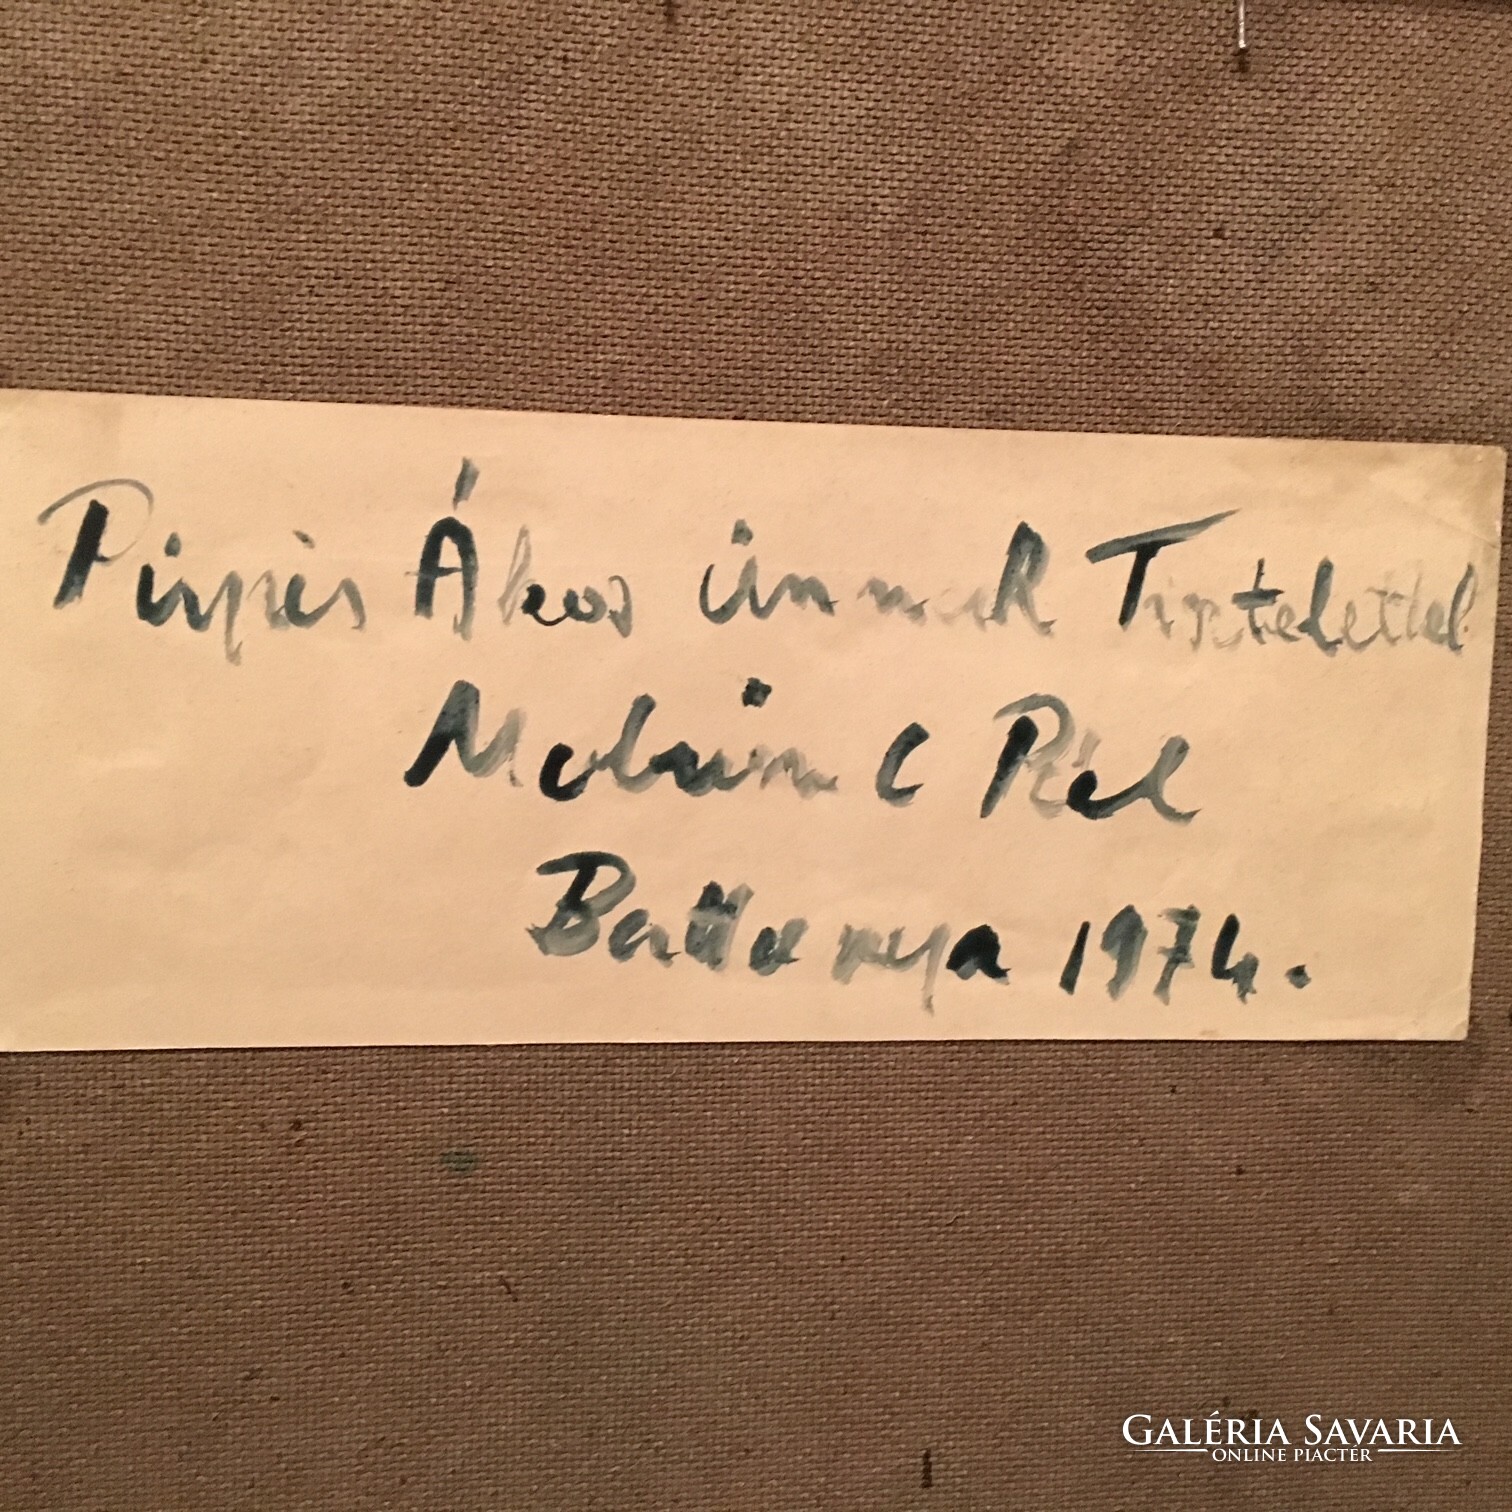 Püspös Ákos Úrnak Tisztelettel
Molnár C Pál
Battonya 1974.
GALÉRIA SAVARIA
ONLINE PIACTÉR